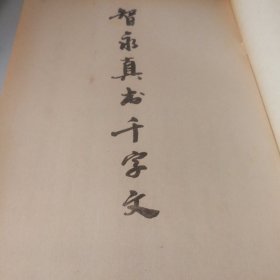 智永真书千字文